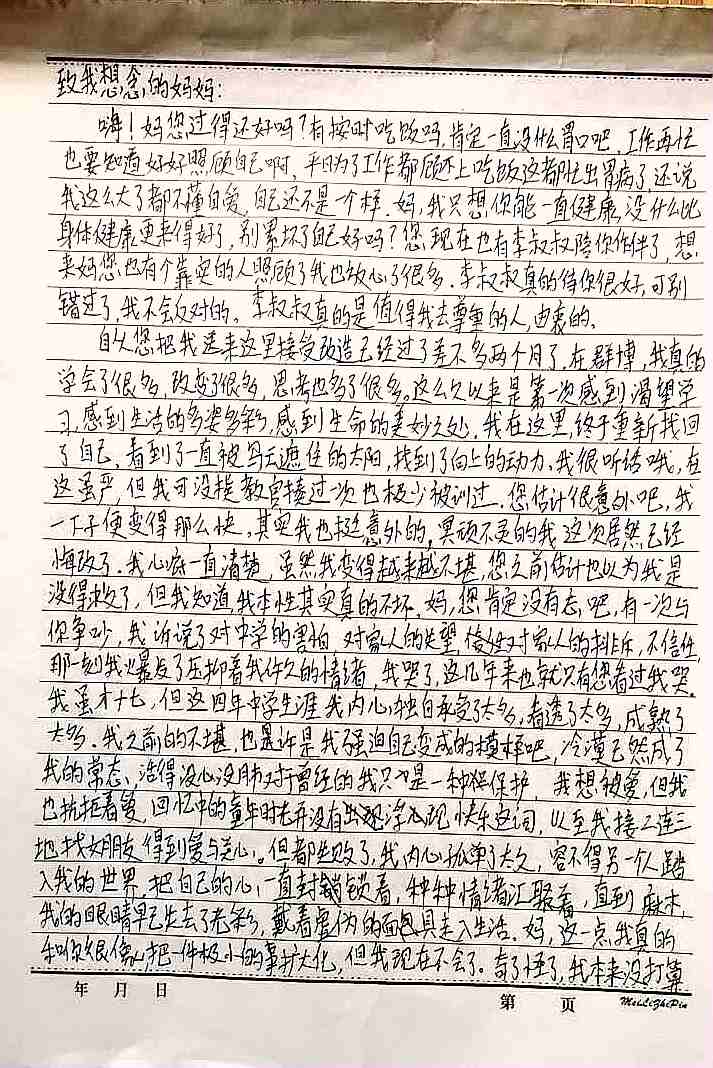 致我想念的妈妈：
嗨！妈您过得还好吗？有按时吃饭吗，肯定一直没什么胃口吧，工作再忙
也要知道好好照顾自己啊，平日为了工作都顾不上吃饭这都忙出胃病了，还说
我这么大了都不懂自爱，自己还不是一个样．妈，我只想你能一直健康，没什么比
身体健康更来得好了，别累坏了自己好吗？您，现在也有李叔叔陪你作伴了，想
来妈您也有个靠实的人照顾了我也放心了很多．李叔叔真的待你很好，可别
错过了，我不会反对的．李叔叔真的是值得我去尊重的人，由衷的、
自从您把我送来这里接受改造已经过了差不多两个月了，在群博，我真的
学会了很多，改变了很多，思考也多了很多。这么久以来是第一次感到渴望学
习，感到生活的多姿多彩，感到生命的美妙之处．我在这里，终于重新找回
了自己，看到了一直被乌云遮住的太阳，找到了向上的动力．我很听话哦，在
这虽严，但我可没挨教官揍过一次也极少被训过．您估计很意外吧，我
一下子便变得那么快，其实我也挺意外的，冥顽不灵的我这次居然已经
悔改了．我心底一直清楚，虽然我变得越来越不堪，您之前估计也以为我是
没得救了，但我知道，我本性其实真的不坏．妈，您肯定没有忘吧，有一次与
你争吵，我诉说了对中学的害怕，对家人的失望，对家人的排斥，不信任，
那一刻我爆发了压抑着我许久的情绪，我哭了，这几年来也就只有您看过我哭．
我虽才十七，但这四年中学生涯我内心独自承受了太多，看透了太多，成熟了
太多．我之前的不堪，也是许是我强迫自己变成的模样吧，冷漠已然成了
我的常态，活得没心没肺对于曾经的我只是一种保护，我想被爱，但我
也抗拒着爱，回忆中的童年时光并没有出现浮现快乐这词，以至我接二连三
地找女朋友得到爱与关心。但都失败了，我内心孤单了太久，容不得另一个人踏
入我的世界，把自己的心一直封锁着，种种情绪汇聚着，直到麻木，
我的眼睛早已失去了光彩，戴着虚伪的面具走入生活．妈，这一点我真的
和你很像，把一件极小的事扩大化，但我现在不会了．奇了怪了，我本来没打算
年 月 日
第 页
MeiLiZhiPin